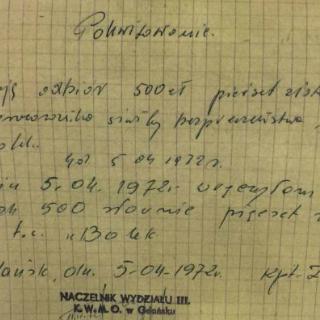 Pokwitowanie.
odbiór 500 zł pięćset złot
służby bezpieczeństwa
dn. 5.04.1972r.
5.04.1972. wręczyłem
500 słownie pięćset
t.w. "Bolek
dańsk, dn. 5-04-1972r. kpt.
NACZELNIK WYDZIAŁU III.
K.W.M.O. w Gdańsku